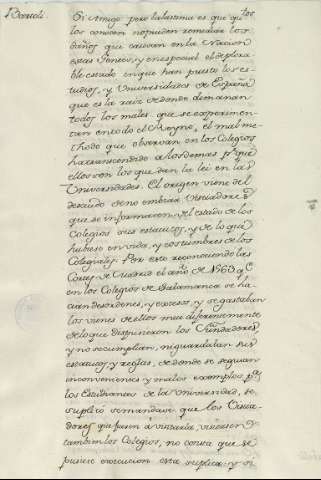 Bartoli.
Si Amigo pero la lastima es que q.e los
los conocen no pueden remediar los
daños que causan en la Nacion
estas Gentes, y en especial el deplora-
ble estado en que han puesto los es-
tudios, y Universidades de España
que es la raiz de donde dimanan
todos los males que se experimen-
tan en todo el Reyno, el mal me-
thodo que observan en los Colegios
ha transcendido a los demas p.r q.e
ellos son los que dan la lei en las
Universidades. El origen viene del
descuido de no embiar Visitadores
que se informasen del estado de los
Colegios sus estatutos, y de lo que
hubiese en vida, y costumbres de los
Colegiales. Por esto reconociendo las
Cortes de Madrid el año de 1563 q.e
en los Colegios de Salamanca se ha-
cian desordenes, y excesos, y se gastaban
los vienes de ellos mui diferentemente
de lo que dispusieron los Fundadores,
y no se cumplian, ni guardaban sus
estatutos, y reglas, de donde se seguian
inconvenientes y malos exemplos p.a
los Estudiantes de la Universidad, se
suplicó se mandase que los Visita-
dores que fuesen á visitarla, visitasen
tambien los Colegios, no consta que se
pusiese execucion esta suplica; y si